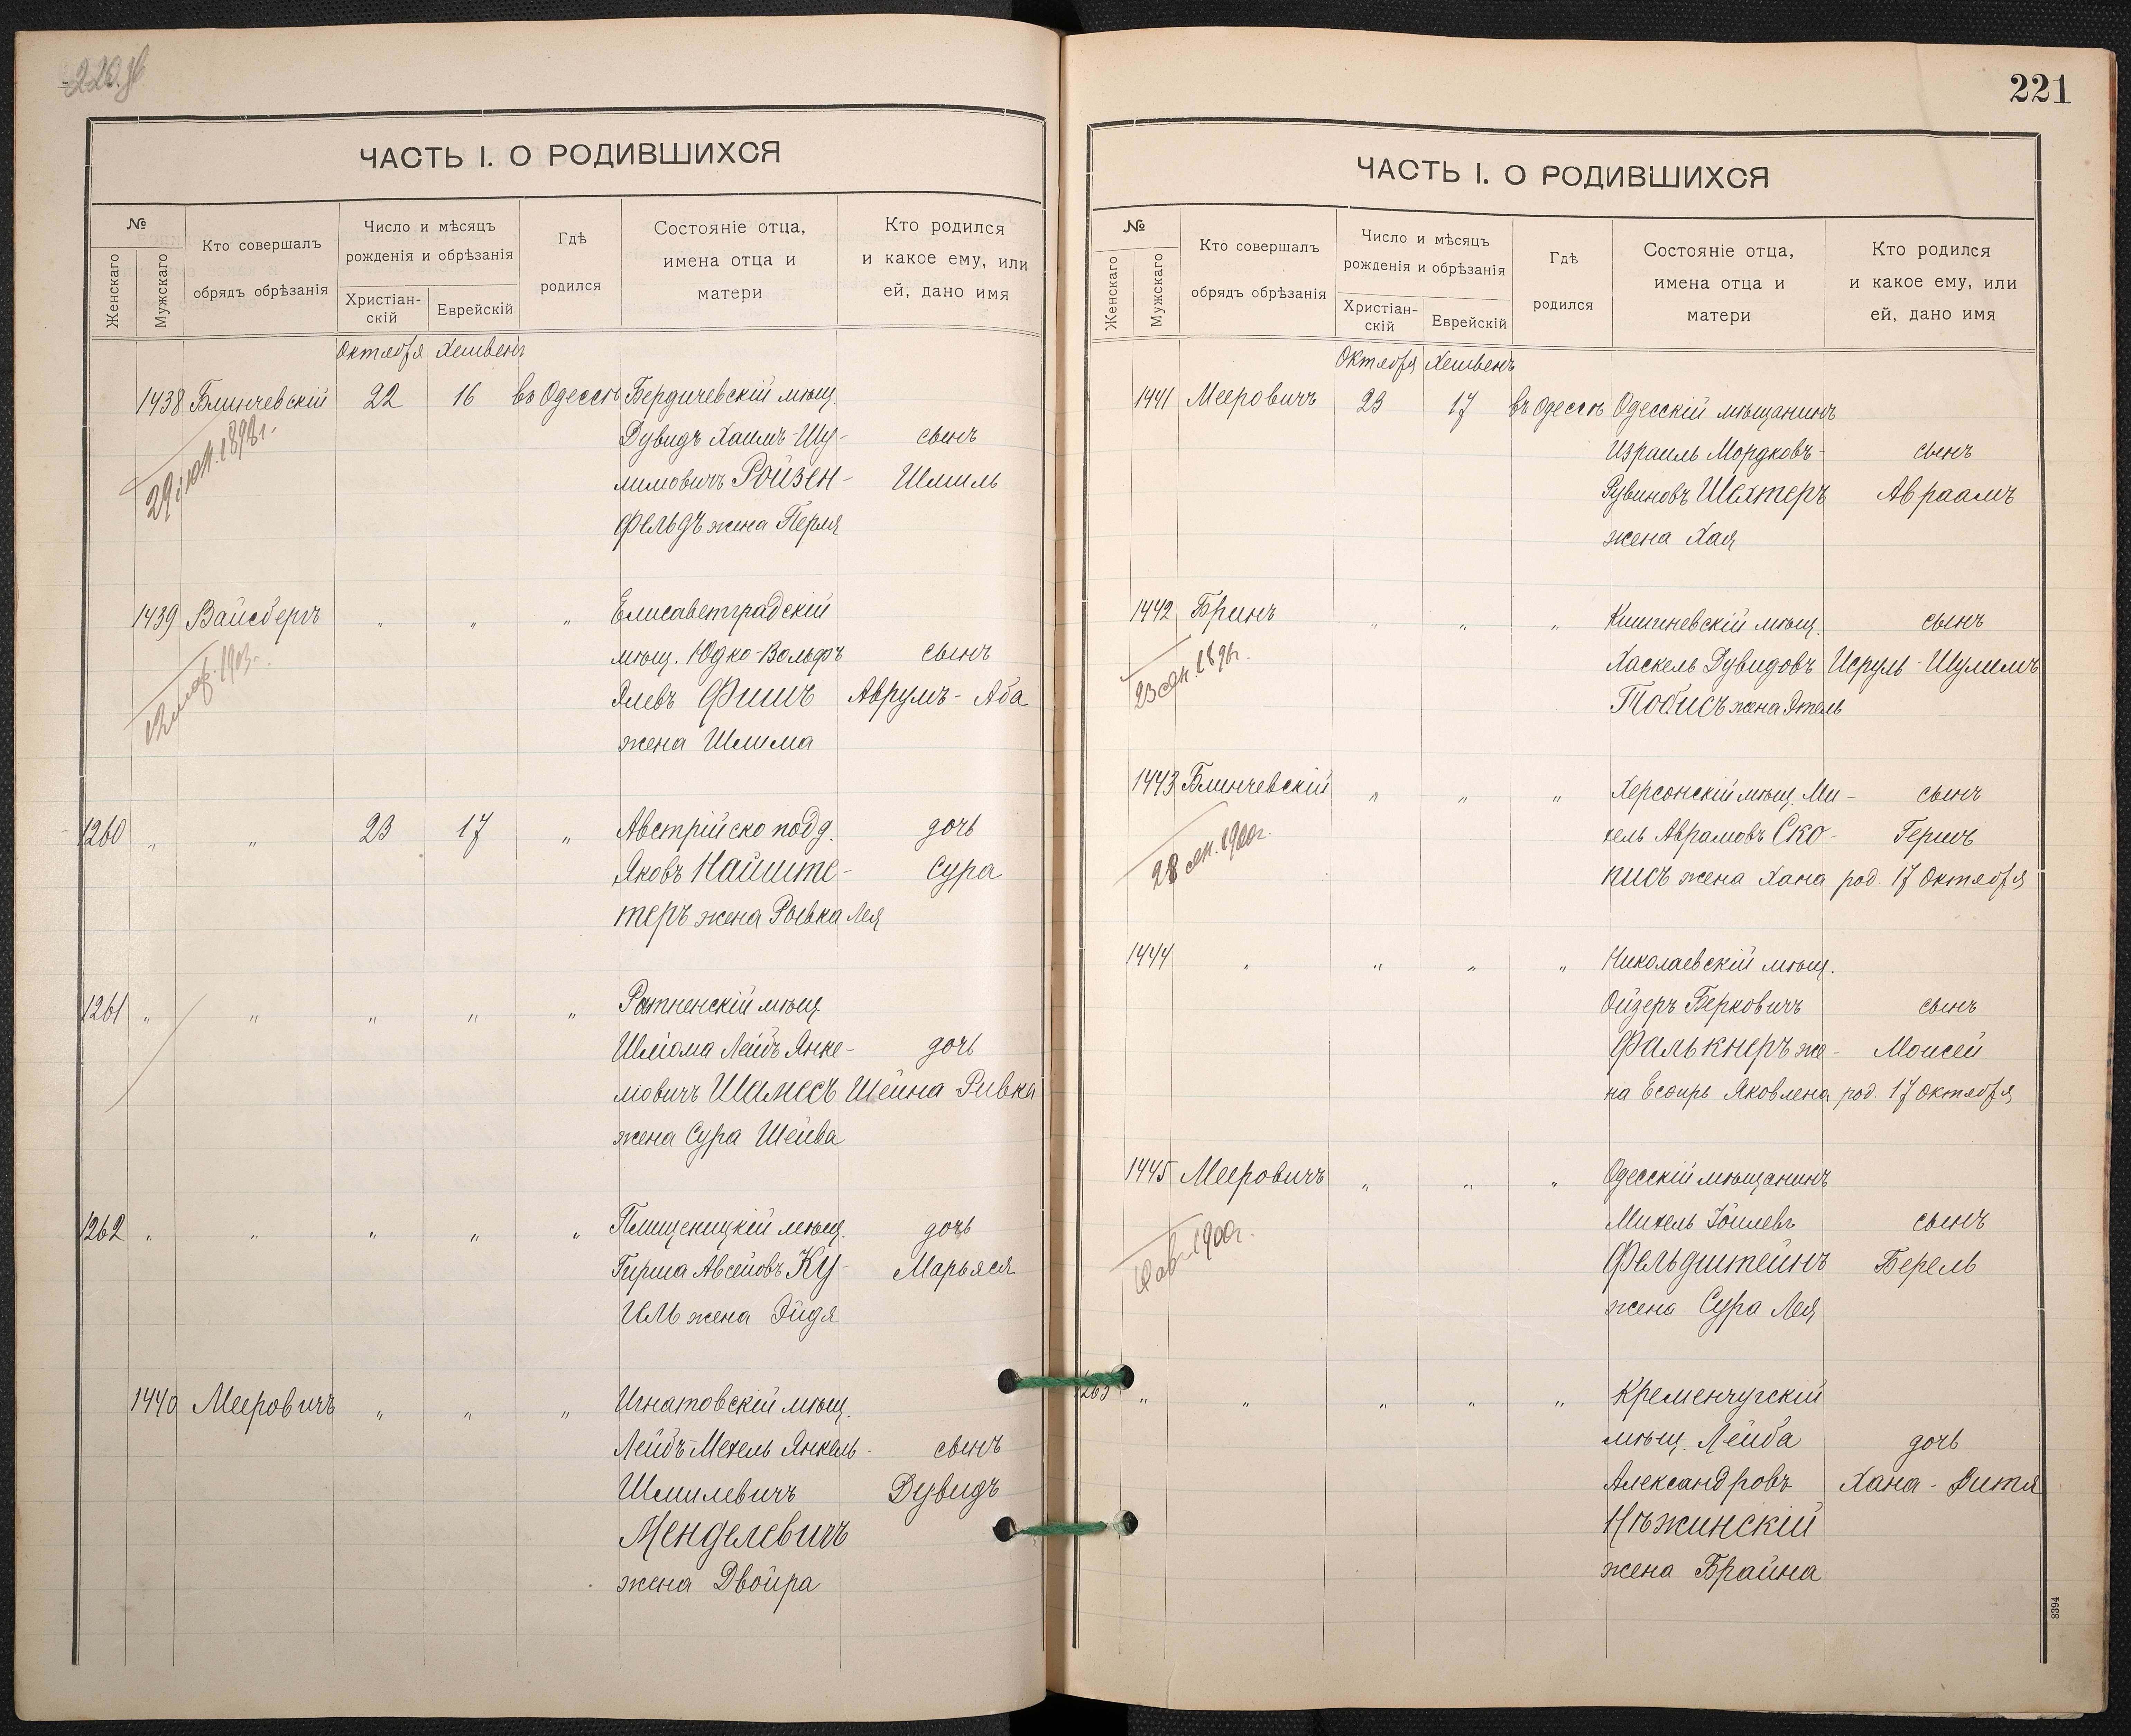 220 об
ЧАСТЬ I. О РОДИВШИХСЯ
№
Женскаго
Мужскаго
Кто совершалъ
обрядъ обрѣзанія
Число и мѣсяцъ
рожденія и обрѣзанія
Христіан-
скій
Еврейскій
Гдѣ
родился
Состояніе отца,
имена отца и
матери
Кто родился
и какое ему, или
ей, дано имя
Октября Хешвенъ
1438 Блинчевскій 22 16 въ Одессѣ Бердичевскій мѣщ.
Дувидъ Хаимъ-Шу- сынъ
лимовичъ Ройзен- Шмиль
фельдъ жена Перля
1898г.
1439 Вайсбергъ " " " Елисаветградскій
мѣщ. Юдко-Вольфъ сынъ
Элевъ Фишъ Аврумъ-Аба
жена Шлима
1903
1260 " " 23 17 " Австрійско подд. дочь
Яковъ Найште- Сура
теръ жена Рывка Лея
1261 " " " " " Ратненскій мѣщ.
Шліома Лейбъ Янке- дочь
ліовичъ Шамесъ Шейна Ривка
жена Сура Шейва
1262 " " " " " мѣщ. дочь
Гирша Авсеіовъ Ку- Марьяся
цель жена Эйдя
1440 Мееровичъ " " " Игнатовскій мѣщ.
Лейбъ-Мехель Янкель- сынъ
Шмилевичъ Дувидъ
Менделевичъ
жена Двойра
221
ЧАСТЬ I. О РОДИВШИХСЯ
№
Женскаго
Мужскаго
Кто совершалъ
обрядъ обрѣзанія
Число и мѣсяцъ
рожденія и обрѣзанія
Христіан-
скій
Еврейскій
Гдѣ
родился
Состояніе отца,
имена отца и
матери
Кто родился
и какое ему, или
ей, дано имя
Октября Хешвенъ
1441 Мееровичъ 23 17 въ Одессѣ Одесскій мѣщанинъ
Израиль Мордковъ- сынъ
Рувиновъ Шехтеръ Авраамъ
жена Хая
1442 Бринъ " " " Кишиневскій мѣщ. сынъ
Хаскель Дувидовъ Исруль-Шулимъ
Тобисъ жена Этель
23 сен.
1443 Блинчевскій " " " Херсонскій мѣщ. Ми- сынъ
хель Аврамовъ Ско- Гершъ
писъ жена Хана род. 17 Октября
28 1900г.
1444 " " " " Николаевскій мѣщ.
Ойзеръ Берковичъ сынъ
Фалькнеръ же- Моисей
на Есфирь Яковлена род. 17 Октября
1445 Мееровичъ " " " Одесскій мѣщанинъ
Михель Іойлевъ сынъ
Фельдштейнъ Берель
жена Сура Лея
1900г.
263 " " " " " Кременчугскій
мѣщ. Лейба дочь
Александровъ Хана-Витя
Нѣжинскій
жена Брайна
8394